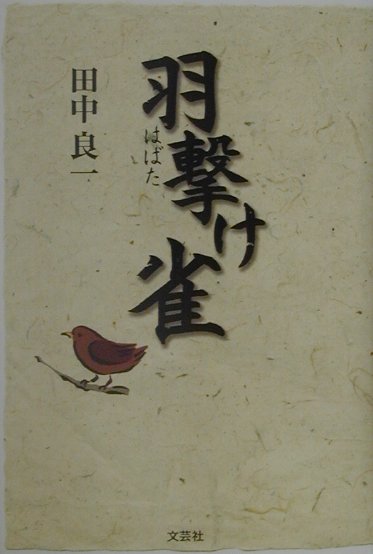 羽撃け雀
はばた
田中良一
文芸社